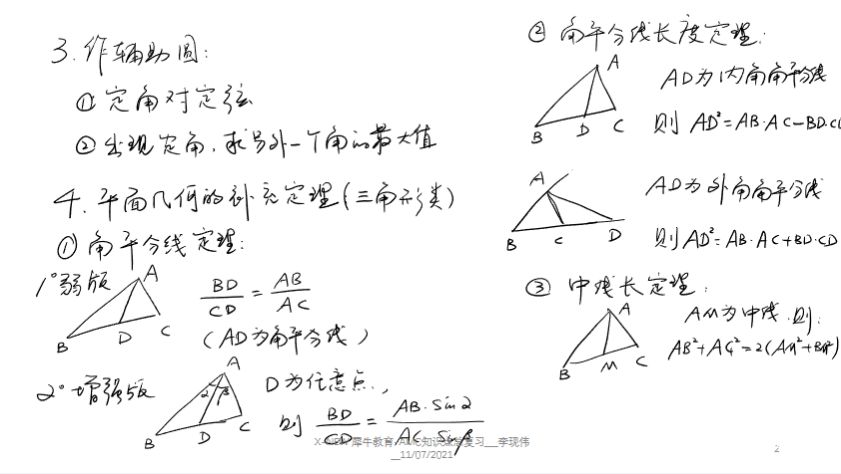 3. 作辅助圆:
① 定角对定弦
② 出现定角,求另外一个角的最大值
4. 平面几何的补充定理(三角形类)
① 角平分线定理:
1° 弱版
A
B D C
BD/CD = AB/AC
(AD为角平分线)
2° 增强版
A
α β
B D C
D为任意点,
则 BD/CD = AB·sinα/AC·sinβ
② 角平分线长度定理:
A
B D C
AD为内角角平分线
则 AD²=AB·AC-BD·CD
A
B C D
AD为外角角平分线
则 AD²=AB·AC+BD·CD
③ 中线长定理:
A
B M C
AM为中线,则:
AB²+AC²=2(AM²+BM²)
犀牛教育
复习__李现伟
__11/07/2021
2